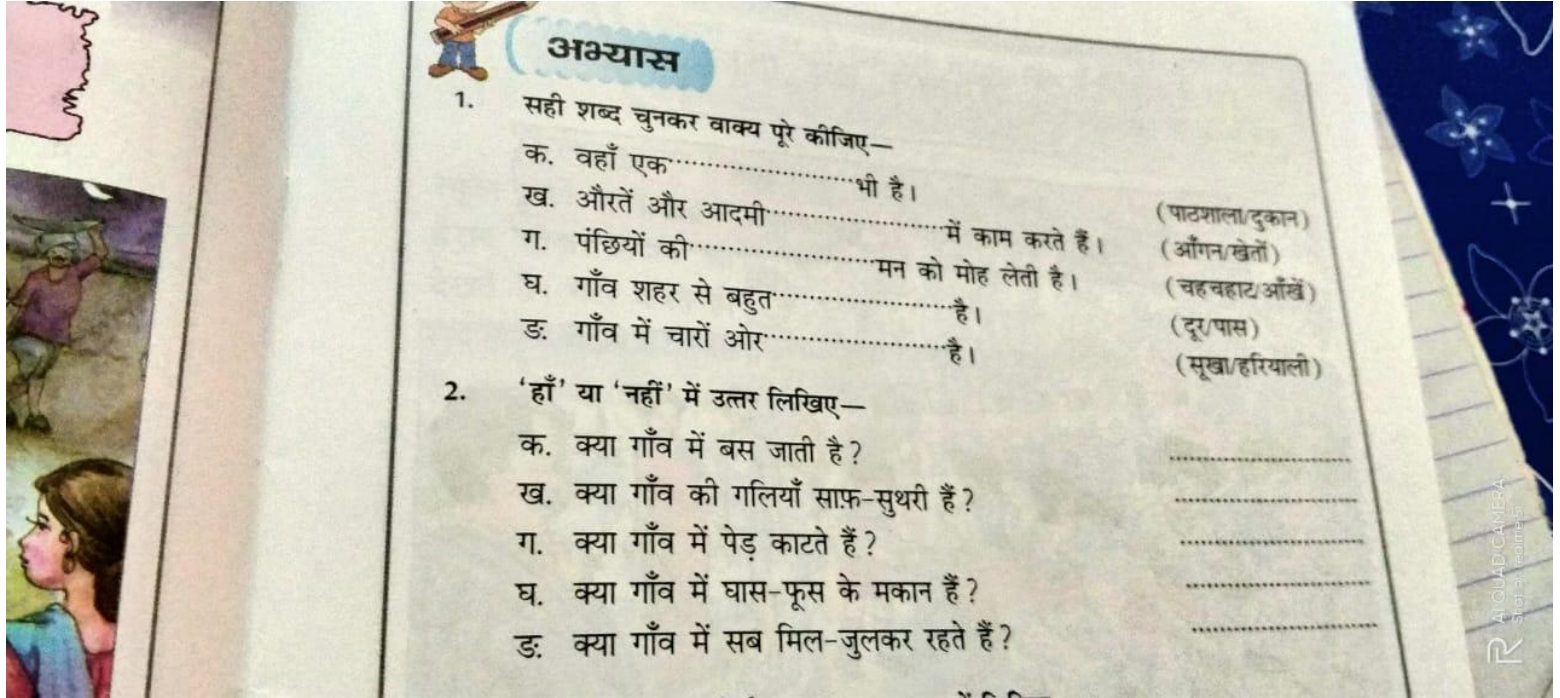 अभ्यास
1. सही शब्द चुनकर वाक्य पूरे कीजिए—
क. वहाँ एक....................भी है। (पाठशाला/दुकान)
ख. औरतें और आदमी....................में काम करते हैं। (आँगन/खेतों)
ग. पंछियों की....................मन को मोह लेती है। (चहचहाट/आँखें)
घ. गाँव शहर से बहुत....................है। (दूर/पास)
ङ. गाँव में चारों ओर....................है। (सूखा/हरियाली)
2. 'हाँ' या 'नहीं' में उत्तर लिखिए—
क. क्या गाँव में बस जाती है? ....................
ख. क्या गाँव की गलियाँ साफ़-सुथरी हैं? ....................
ग. क्या गाँव में पेड़ काटते हैं? ....................
घ. क्या गाँव में घास-फूस के मकान हैं? ....................
ङ. क्या गाँव में सब मिल-जुलकर रहते हैं? ....................
R AI QUAD CAMERA
Shot on realme 5i